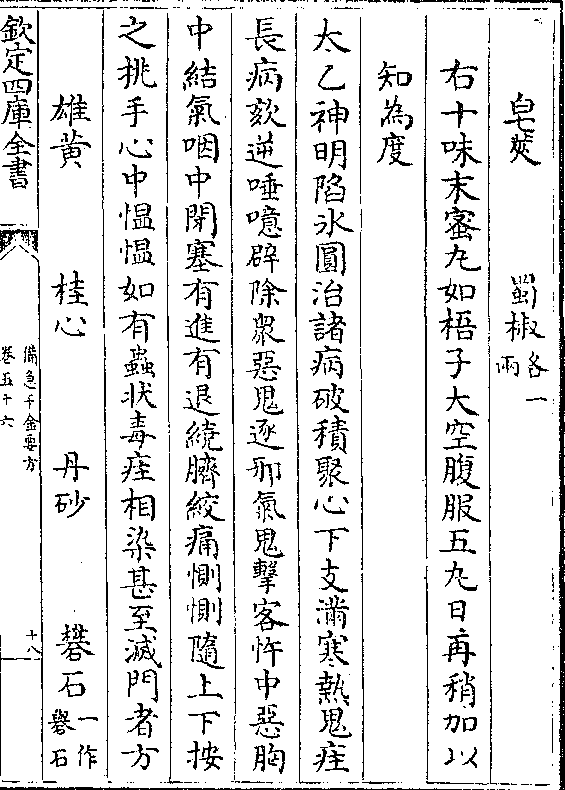 皂莢 蜀椒各一兩
右十味末蜜丸如梧子大空腹服五丸日再稍加以
知為度
太乙神明陷冰圓治諸病破積聚心下支滿寒熱鬼疰
長病欬逆唾噫辟除衆惡鬼逐邪氣鬼擊客忤中惡胸
中結氣咽中閉塞有進有退繞臍絞痛惻惻隨上下按
之挑手心中愠愠如有蟲狀毒疰相染甚至滅門者方
雄黄 桂心 丹砂 礬石一作礜石
欽定四庫全書
備急千金要方
卷五十六
十八